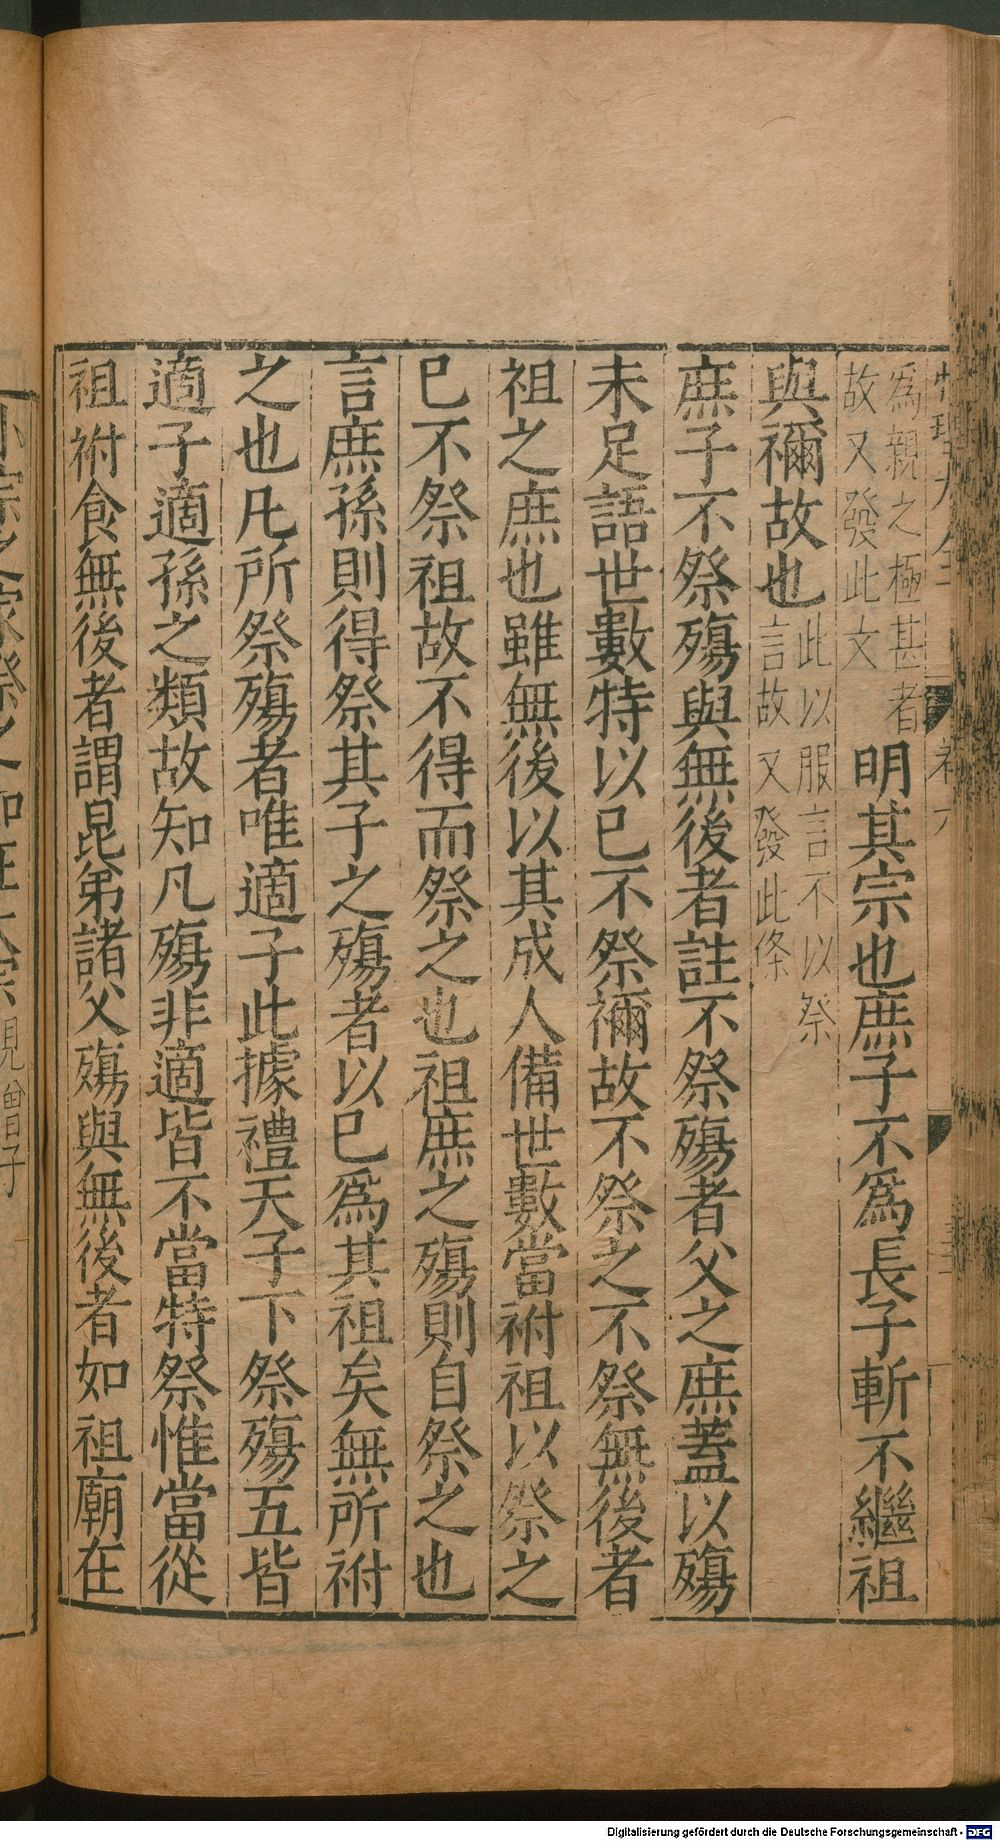 為親之極甚者
故又發此文
明其宗也庶子不為長子斬不繼祖
與禰故也
此以服言不以祭
言故又發此條
庶子不祭殤與無後者註不祭殤者父之庶蓋以殤
未足語世數特以已不祭禰故不祭之不祭無後者
祖之庶也雖無後以其成人備世數當祔祖以祭之
已不祭祖故不得而祭之也祖庶之殤則自祭之也
言庶孫則得祭其子之殤者以已為其祖矣無所祔
之也凡所祭殤者唯適子此據禮天子下祭殤五皆
適子適孫之類故知凡殤非適皆不當特祭惟當從
祖祔食無後者謂昆弟諸父殤與無後者如祖廟在
Digitalisierung gefördert durch die Deutsche Forschungsgemeinschaft - DFG